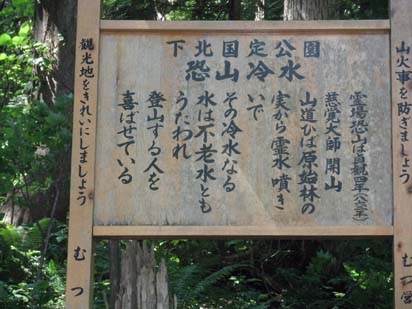 下北国定公園
恐山冷水
霊場恐山は貞観四年(八六二年)
慈覚大師 開山
山道ひば原始林の
実から霊水噴き
いで
その冷水なる
水は不老水とも
うたわれ
登山する人を
喜ばせている
山火事を防ぎましょう むつ営
観光地をきれいにしましょう むつ